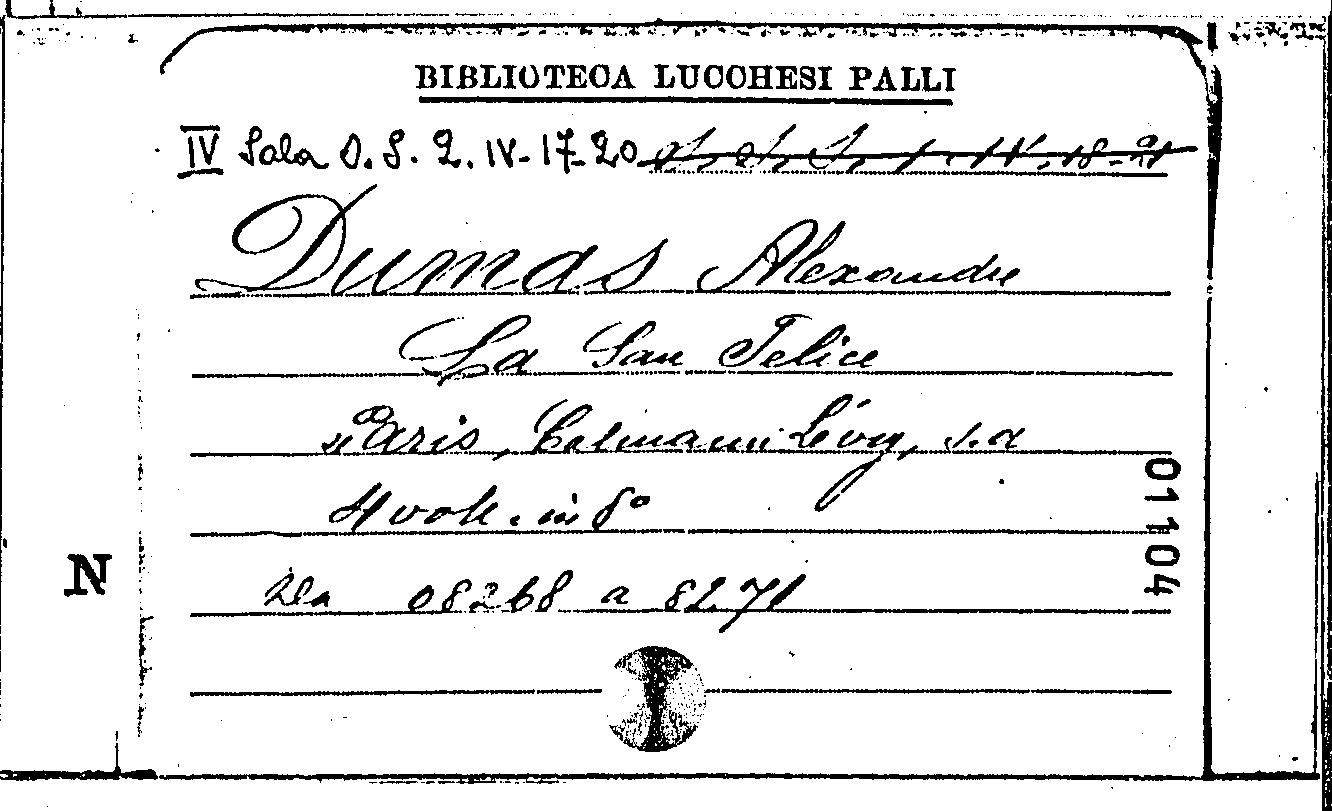 BIBLIOTECA LUCCHESI PALLI
IV Sala O. S. 2. IV-17-20
Dumas Alexandre
La San Felice
Paris, Calmann Lévy, s.d
4 voll. in 8°
Da 08268 a 8271
N
01104